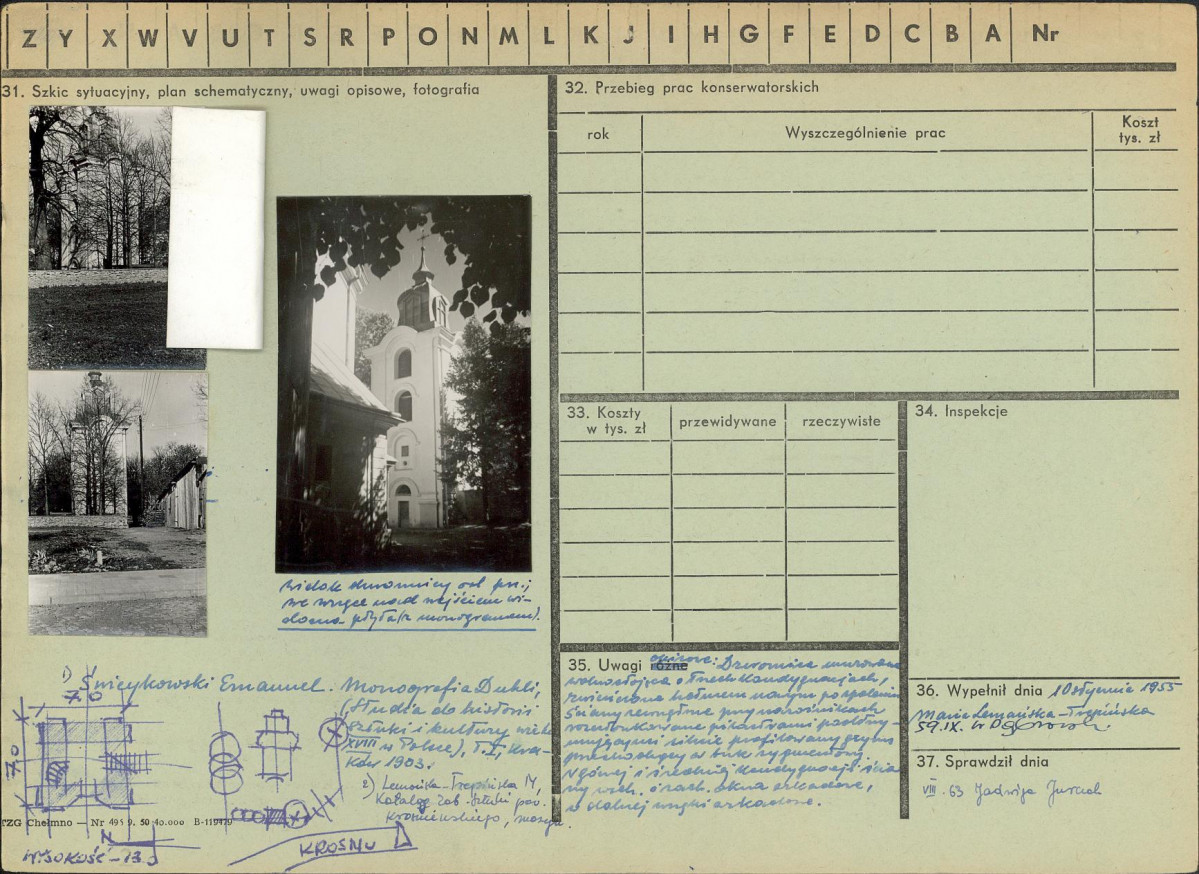 Z Y X W V U T S R P O N M L K J I H G F E D C B A Nr
31. Szkic sytuacyjny, plan schematyczny, uwagi opisowe, fotografia
widok dzwonnicy od
we wnęce nad wejściem wi-
doczna płyta (z monogramem).
1) Święykowski Emanuel. Monografia Dukli,
(Studia do historii
sztuki i kultury wieku
XVIII w Polsce), T. I, Kra-
ków 1903.
2) Lemańska-Trepińska M,
Katalog Zab. Sztuki pow.
Krośnieńskiego, maszyn.
7,0
7,0
N
WYSOKOŚĆ -
KROSNU
TZG Chełmno — Nr 495 9. 50 40.000 B-119479
32. Przebieg prac konserwatorskich
rok
Wyszczególnienie prac
Koszt
tys. zł
33. Koszty
w tys. zł
przewidywane
rzeczywiste
34. Inspekcje
35. Uwagi różne opisowe: Dzwonnica murowana
wolnostojąca o trzech kondygnacjach,
zwieńczona hełmem
Ściany zewnętrzne przy narożnikach
silnie profilowany gzyms
w górnej i średniej kondygnacji ścia-
ny okna arkadowe,
w dolnej wnęki arkadowe.
36. Wypełnił dnia 10 stycznia 1955
Maria Lemańska-Trepińska
59.IX.
37. Sprawdził dnia
VIII. 63 Jadwiga